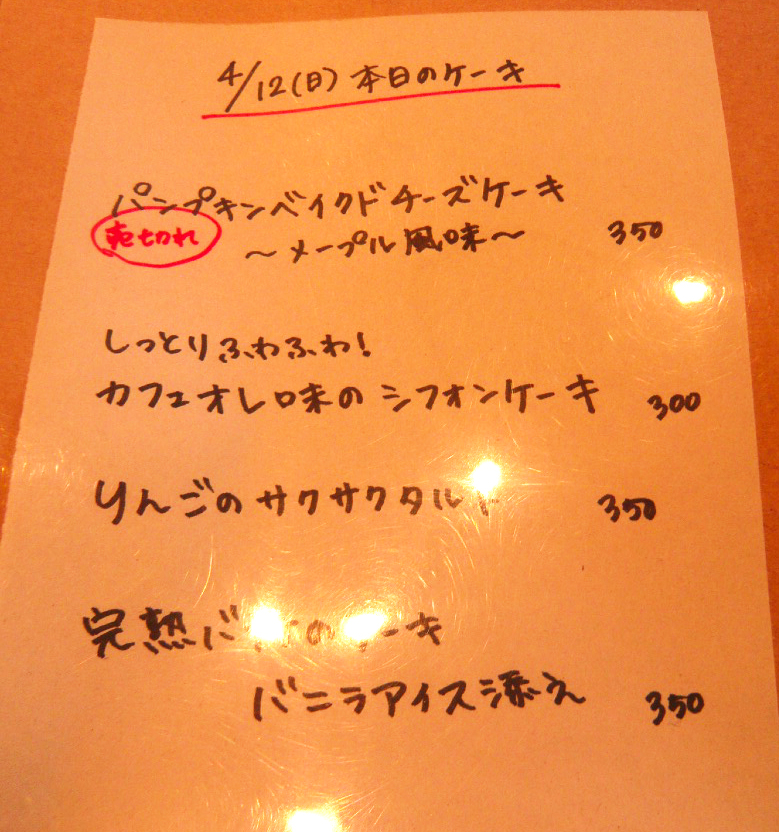 4/12(日) 本日のケーキ
パンプキンベイクドチーズケーキ
売切れ ～メープル風味～ 350
しっとりふわふわ!
カフェオレ味のシフォンケーキ 300
りんごのサクサクタルト 350
完熟バ のケーキ
バニラアイス添え 350